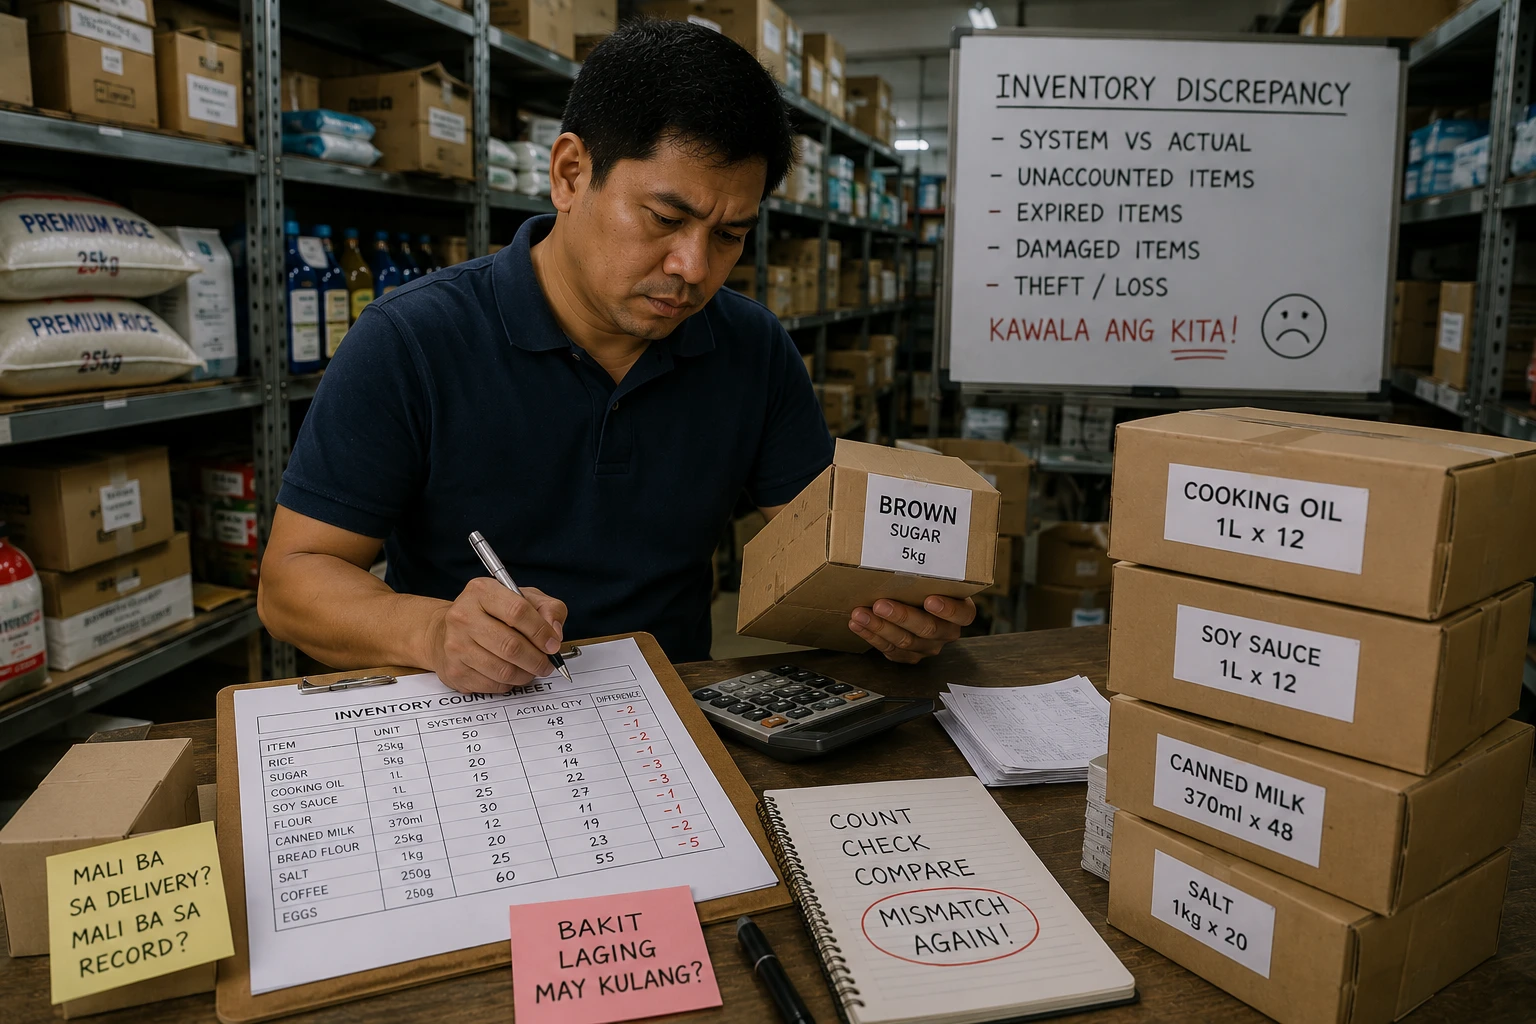 INVENTORY DISCREPANCY
- SYSTEM VS ACTUAL
- UNACCOUNTED ITEMS
- EXPIRED ITEMS
- DAMAGED ITEMS
- THEFT / LOSS
KAWALA ANG KITA!
PREMIUM RICE
25kg
PREMIUM RICE
25kg
BROWN
SUGAR
5kg
COOKING OIL
1L x 12
SOY SAUCE
1L x 12
CANNED MILK
370ml x 48
SALT
1kg x 20
INVENTORY COUNT SHEET
ITEM UNIT SYSTEM QTY ACTUAL QTY DIFFERENCE
RICE 25kg 50 48 -2
SUGAR 5kg 10 9 -1
COOKING OIL 1L 20 18 -2
SOY SAUCE 1L 15 14 -1
FLOUR 5kg 25 22 -3
CANNED MILK 370ml 30 27 -3
BREAD FLOUR 25kg 12 11 -1
SALT 1kg 20 19 -1
COFFEE 250g 25 23 -2
EGGS 250g 60 55 -5
MALI BA
SA DELIVERY?
MALI BA SA
RECORD?
BAKIT
LAGING
MAY KULANG?
COUNT
CHECK
COMPARE
MISMATCH
AGAIN!